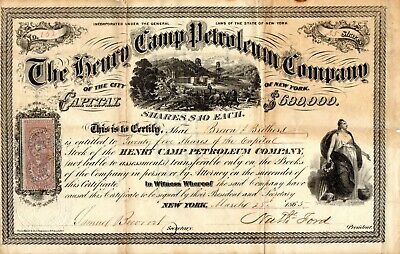 INCORPORATED UNDER THE GENERAL LAWS OF THE STATE OF NEW YORK
No. Shares
The Henry Camp Petroleum Company
OF THE CITY OF NEW YORK.
CAPITAL $600,000.
SHARES $10 EACH.
This is to Certify, that Brown & Brothers
is entitled to Twenty five Shares of the Capital
Stock of the HENRY CAMP PETROLEUM COMPANY,
(not liable to assessments) transferable only on the Books
of the Company in person or by Attorney on the surrender of
this Certificate. In Witness Whereof the said Company have
caused this Certificate to be signed by their President and Secretary
NEW YORK, March 1865
Nath Ford
Secretary. President.